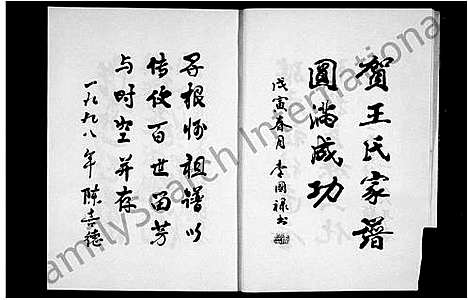 贺王氏家谱
圆满成功
戊寅春月 李国禄书
寻根 祖谱以
传后百世留芳
与时空并存
一九九八年 陈喜德
FamilySearch International